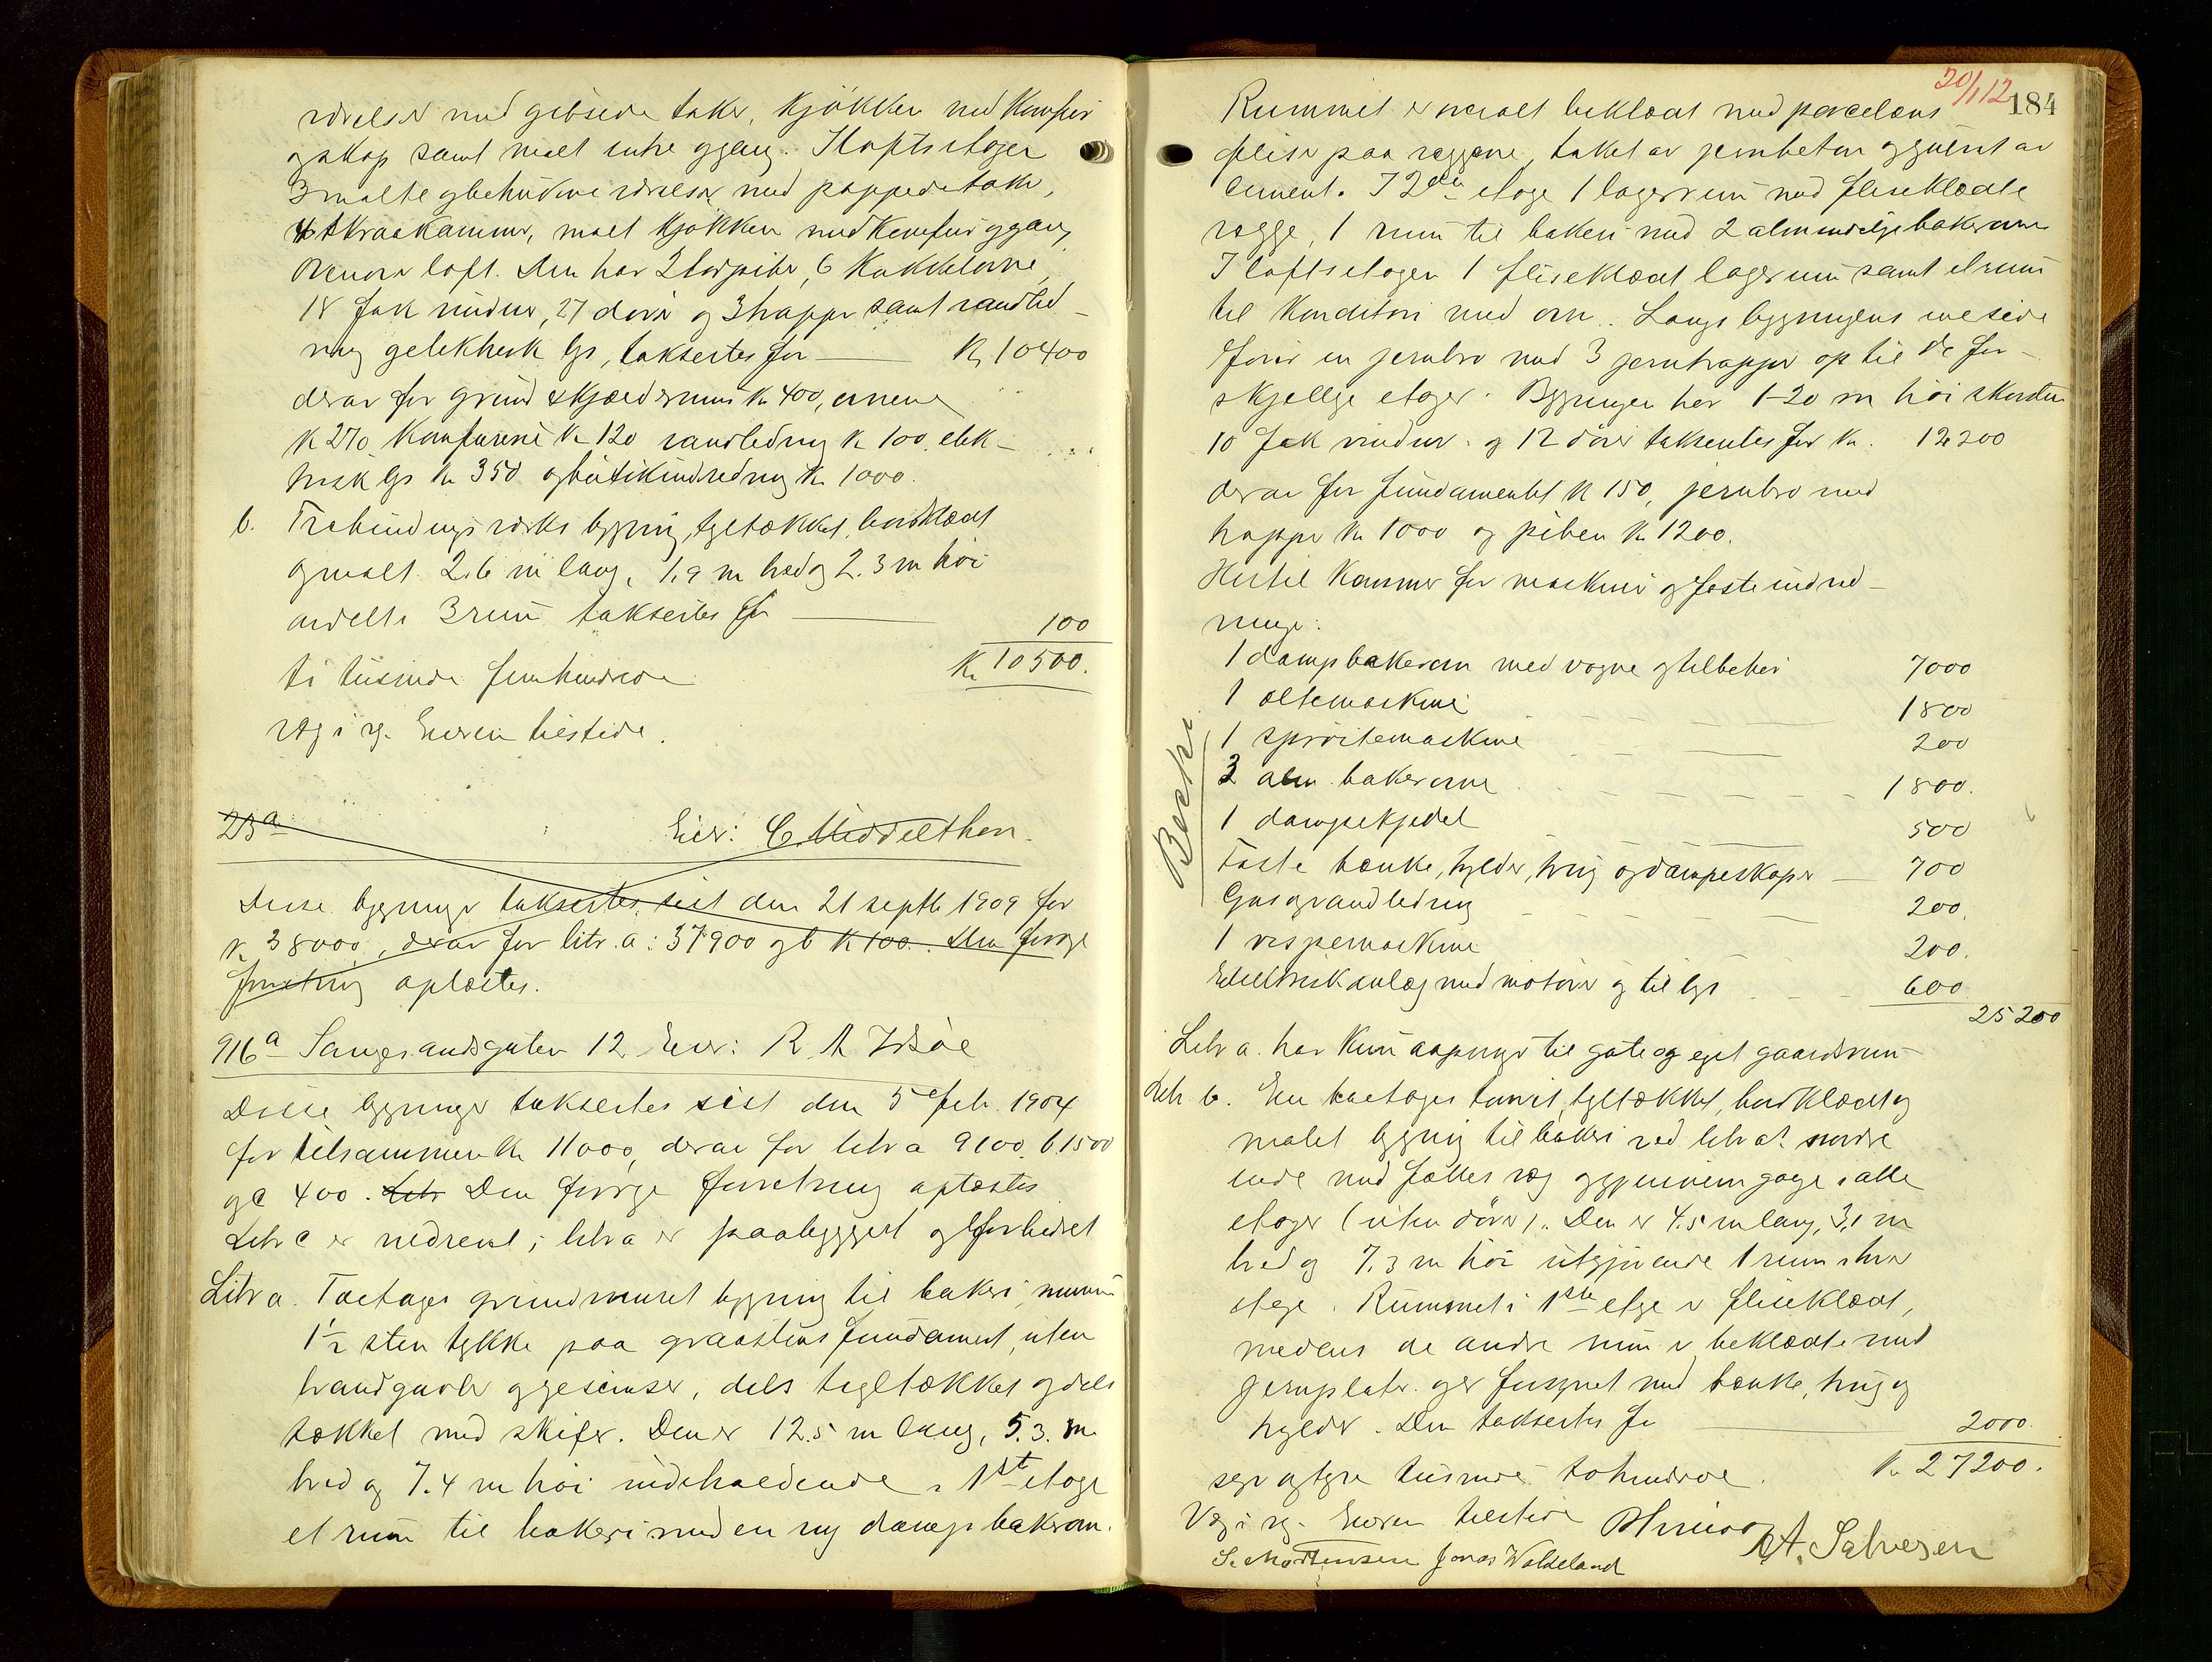 værelser med gibsede taker, kjøkken med komfur
og skap samt malt entre og gang. I loftsetagen
3 malte og betrukne værelser med pappede taker,
4 skraakammer, malt kjøkken med komfur og gang
Ovenover loft. Den har 2 torpiber, 6 kakkelovne,
18 fak vinduer, 27 dører og 3 trapper samt vandled-
ning og elektrisk lys, taksertes for — Kr 10400
derav for grund & kjælderrum kr 400, ovnene
kr 270 komfurene kr 120 vandledning kr 100. elek-
trisk lys kr 350 og butikindredning kr 1000.
b. Trebindingsverks bygning, tegltækket, bordklædt
og malt 2.6 m lang, 1.9 m bred og 2.3 m høi
avdelt i 3 rum taksertes for — 100
ti tusinde femhundrede Kr 10500.
væg i rg. Eieren tilstede.
23a Eier: C. Middelthon.
Disse bygninger taksertes sist den 21 septb 1909 for
kr 38000, derav for litr. a: 37900 og b kr 100. Den forrige
forretning oplæstes.
916a Langesandsgaten 12 Eier: R A Idsøe
Disse bygninger taksertes sist den 5 feb. 1904
for tilsammen kr 11000, derav for litr a 9100. b. 1500
og c 400. Litr Den forrige forretning oplæstes
Litr c er nedrevet; litr a er paabygget og forbedret
Litr a. Toetages grundmuret bygning til bakeri, murene
1½ sten tykke paa graastens fundament, uten
brandgavler og gesimser, dels tegltækket og dels
tækket med skifer. Den er 12.5 m lang, 5.3. m
bred og 7.4 m høi indeholdende i 1ste etage
et rum til bakeri med en ny dampbakerovn.
20/1 12 184
Rummet er overalt beklædt med porcelæns
fliser paa væggene, taket av jernbeton og gulvet av
cement. I 2den etage 1 lagerrum med flisekledte
vægge, 1 rum til bakeri med 2 almindelige bakerovne
I loftsetagen 1 fliseklædt lagerrum samt et rum
til konditori med ovn. Langs bygningens ene side
fører en jernbro med 3 jerntrapper op til de for-
skjellige etager. Bygningen har 1-20 m høi skorsten
10 fak vinduer og 12 dører taksertes for kr. 12200
derav for fundamentet kr 150, jernbro med
trapper kr 1000 og piben kr 1200.
Hertil kommer for maskiner og faste indred-
ninger:
Bakeri
1 dampbakerovn med vogne og tilbehør 7000
1 æltemaskine 1800
1 sprøitemaskine 200
3 alm. bakerovne 1800.
1 dampkjedel 500
Faste bænke, hylder, trug og dampeskaper — 700
Gas og vandledning 200.
1 vispemaskine 200.
Elektrisk anlæg med motorer og til lys 600
25200
Litr a. har kun aapninger til gate og eget gaardsrum
Litr b. En toetages tømret, tegltækket, bordklædt og
malet bygning til bakeri ved litr a's nordre
ende med fælles væg og gjennemgange i alle
etager (uten dører). Den er 4.5 m lang, 3,1 m
bred og 7.3 m høi utgjørende 1 rum i hver
etage. Rummet i 1ste etage er fliseklædt,
medens de andre rum er beklædte med
jernplater og er forsynet med bænke, trug og
hylder. Den taksertes for — 2000.
syv og tyve tusinde tohundrede. Kr. 27200.
Væg i rg. Eieren tilstede
A. Salvesen
S. Mortensen Jonas Waldeland